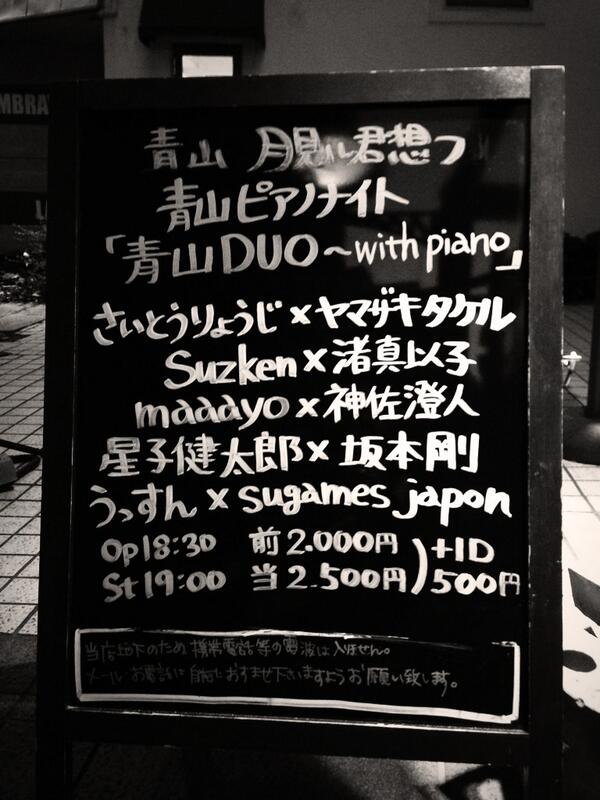 MBRA
青山 月見ル君想フ
青山ピアノナイト
「青山DUO～with piano」
さいとうりょうじ×ヤマザキタケル
Suzken×渚真以子
maaayo×神佐澄人
星子健太郎×坂本剛
うっすん×sugames japon
Op18:30 前2.000円
St19:00 当2.500円
)+1D
500円
当店地下のため携帯電話等の電波は入りません。
メール・お電話は事前におすませ下さいますようお願い致します。